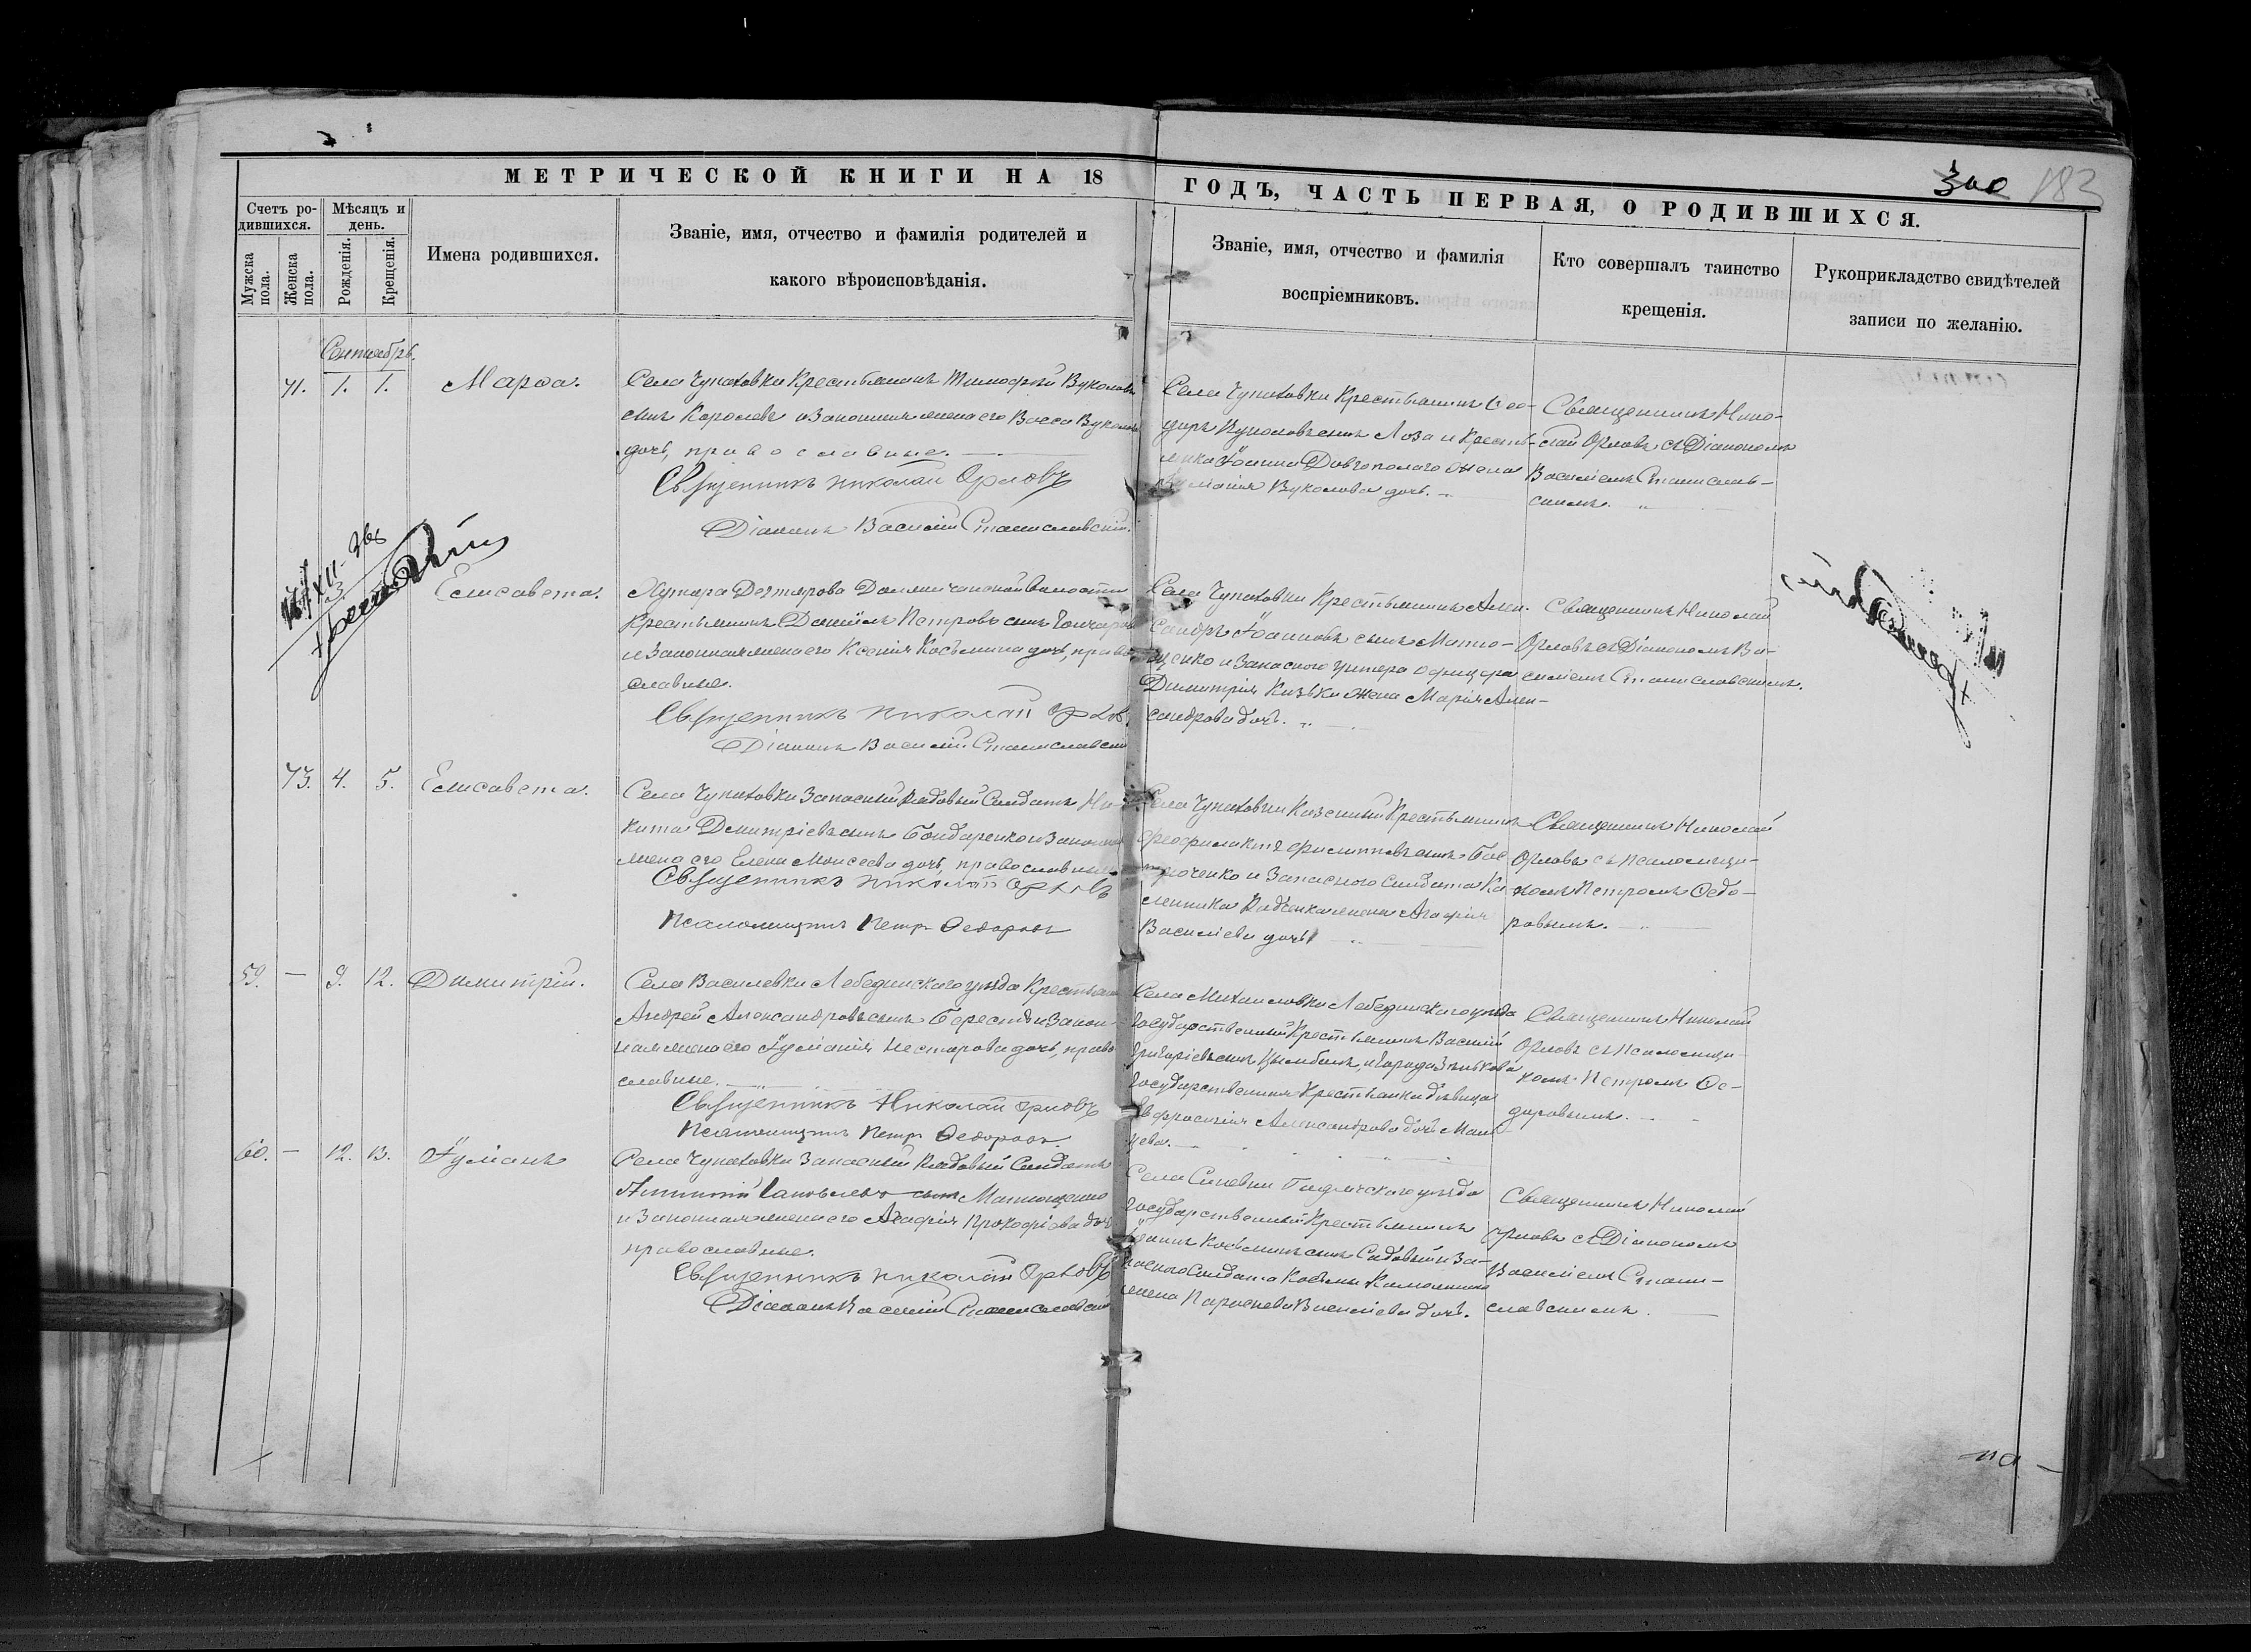 МЕТРИЧЕСКОЙ КНИГИ НА 18
ГОДЪ, ЧАСТЬ ПЕРВАЯ, О РОДИВШИХСЯ.
183
Счетъ ро-
дившихся.
Мужска
пола.
Женска
пола.
Мѣсяцъ и
день.
Рожденія.
Крещенія.
Имена родившихся.
Званіе, имя, отчество и фамилія родителей и
какого вѣроисповѣданія.
Званіе, имя, отчество и фамилія
воспріемниковъ.
Кто совершалъ таинство
крещенія.
Рукоприкладство свидѣтелей
записи по желанію.
Сентябрь.
71. 1. 1. Марѳа.
Села Чупаховки Крестьянинъ Тимоѳей Вуколовъ
сынъ Королевъ и законная жена его Васса Вуколова
дочь, православные.
Священникъ Николай Орловъ
Діаконъ Василій Станиславскій.
Села Чупаховки Крестьянинъ Ѳео-
доръ Вуколовъ сынъ Лоза и Кресть-
янка Іоанна Довгополаго жена
Вуколова дочь.
Священникъ Нико-
лай Орловъ съ Діакономъ
Василіемъ Станислав-
скимъ.
Елисавета.
Хутора Дегтярова
Крестьянинъ Даніилъ Петровъ сынъ Гончаровъ
и законная жена его Ксенія Косьмина дочь, право-
славные.
Священникъ Николай Орловъ
Діаконъ Василій Станиславскій
Села Чупаховки Крестьянинъ Алек-
сандръ Іоанновъ сынъ Матю-
щенко и запасного унтеръ офицера
Димитрія Кизьки жена Марія Алек-
сандрова дочь.
Священникъ Николай
Орловъ съ Діакономъ Ва-
силіемъ Станиславскимъ.
73. 4. 5. Елисавета.
Села Чупаховки Запасный Рядовый Солдатъ Ни-
кита Димитріевъ сынъ Бондаренко и законная
жена его Елена Моисеева дочь, православные.
Священникъ Николай Орловъ
Псаломщикъ Петръ Ѳедоровъ
Села Чупаховки Казенный Крестьянинъ
Филипповъ сынъ
и Запасного Солдата Ка-
линника Радченка жена Агафія
Василіева дочь
Священникъ Николай
Орловъ съ псаломщи-
комъ Петромъ Ѳедо-
ровымъ.
59. — 9. 12. Димитрій.
Села Василевки Лебединскаго уѣзда Крестьянинъ
Андрей Александровъ сынъ Берестъ и закон-
ная жена его Іуліанія Несторова дочь, право-
славные.
Священникъ Николай Орловъ
Псаломщикъ Петръ Ѳедоровъ.
Села Михайловки Лебединскаго уѣзда
Государственный Крестьянинъ Василій
Григоріевъ сынъ Цымбалъ, и города Зѣнькова
Государственная Крестьянка дѣвица
Евфросинія Александрова дочь
Священникъ Николай
Орловъ съ Псаломщи-
комъ Петромъ Ѳе-
доровымъ.
60. — 12. 13. Іуліанъ
Села Чупаховки Запасный Рядовый Солдатъ
сынъ Матющенко
и Законная жена его Агафія Прокофіева дочь
православные.
Священникъ Николай Орловъ
Діаконъ Василій Станиславскій
Села Синевки Гадячскаго уѣзда
Государственный Крестьянинъ
Іоаннъ Косьминъ сынъ Садовый и За-
паснаго Солдата Косьмы
жена Василіева дочь.
Священникъ Николай
Орловъ съ Діакономъ
Василіемъ Стани-
славскимъ.